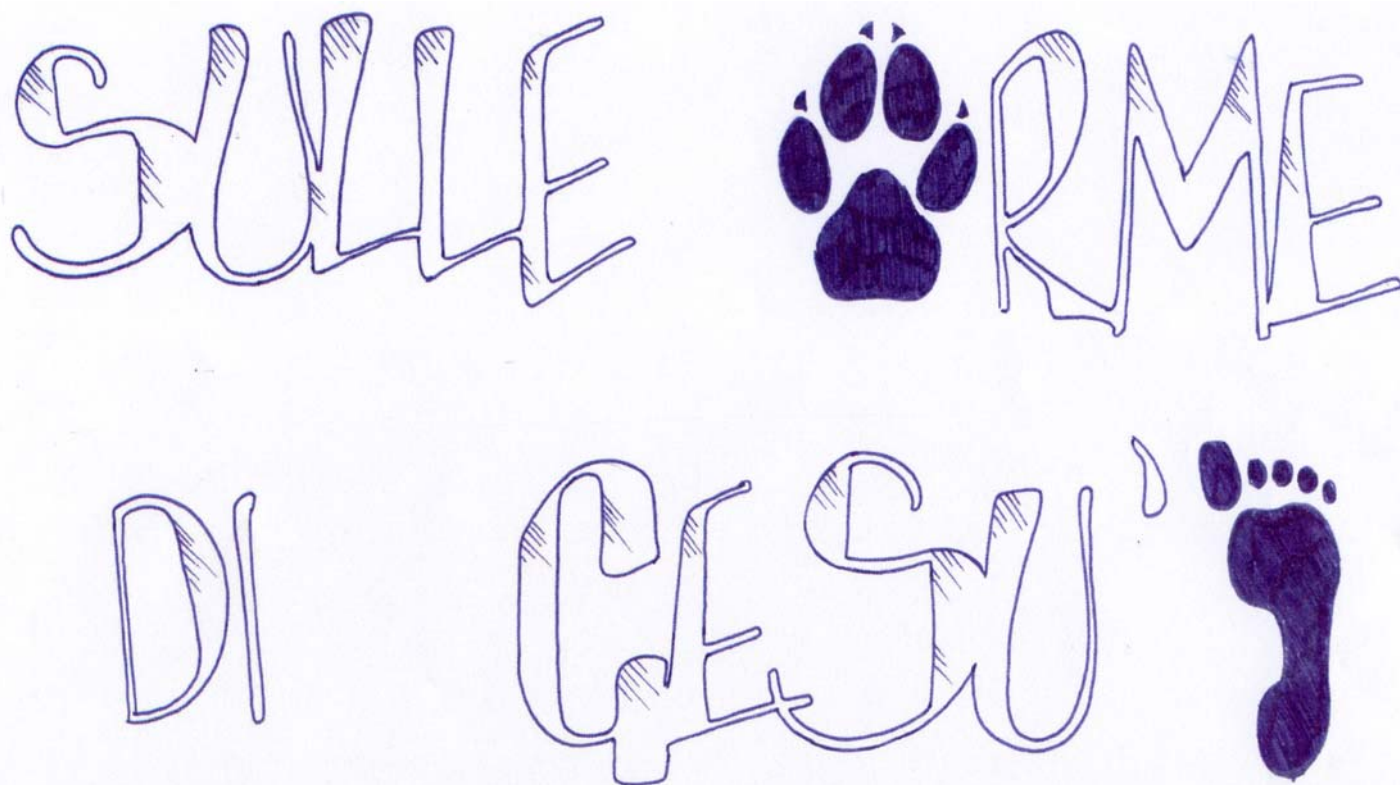 SULLE RME
DI GESU'